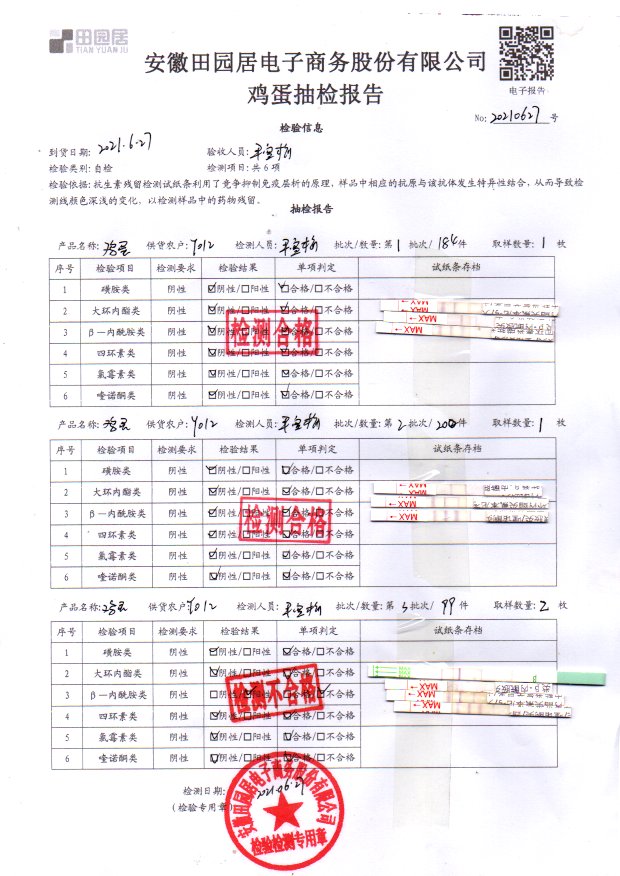 田园居
TIAN YUAN JU
安徽田园居电子商务股份有限公司
鸡蛋抽检报告
电子报告
No: 20210627 号
检验信息
到货日期: 2021-6-27 验收人员:
检验类别: 自检 检测项目: 共 6 项
检验依据: 抗生素残留检测试纸条利用了竞争抑制免疫层析的原理, 样品中相应的抗原与该抗体发生特异性结合, 从而导致检
测线颜色深浅的变化, 以检测样品中的药物残留。
抽检报告
产品名称: 鸡蛋 供货农户: Y012 检测人员: 批次/数量: 第 1 批次/ 184 件 取样数量: 1 枚
序号 检验项目 检测要求 检验结果 单项判定 试纸条存档
1 磺胺类 阴性 ☑阴性/☐阳性 ☑合格/☐不合格
2 大环内酯类 阴性 ☑阴性/☐阳性 ☑合格/☐不合格
3 β－内酰胺类 阴性 ☑阴性/☐阳性 ☑合格/☐不合格
4 四环素类 阴性 ☑阴性/☐阳性 ☑合格/☐不合格
5 氯霉素类 阴性 ☑阴性/☐阳性 ☑合格/☐不合格
6 喹诺酮类 阴性 ☑阴性/☐阳性 ☑合格/☐不合格
检测合格
MAX
MAX
MAX
产品名称: 鸡蛋 供货农户: Y012 检测人员: 批次/数量: 第 2 批次/ 200 件 取样数量: 1 枚
序号 检验项目 检测要求 检验结果 单项判定 试纸条存档
1 磺胺类 阴性 ☑阴性/☐阳性 ☑合格/☐不合格
2 大环内酯类 阴性 ☑阴性/☐阳性 ☑合格/☐不合格
3 β－内酰胺类 阴性 ☑阴性/☐阳性 ☑合格/☐不合格
4 四环素类 阴性 ☑阴性/☐阳性 ☑合格/☐不合格
5 氯霉素类 阴性 ☑阴性/☐阳性 ☑合格/☐不合格
6 喹诺酮类 阴性 ☑阴性/☐阳性 ☑合格/☐不合格
检测合格
MAX
MAX
MAX
产品名称: 鸡蛋 供货农户: Y012 检测人员: 批次/数量: 第 3 批次/ 99 件 取样数量: 2 枚
序号 检验项目 检测要求 检验结果 单项判定 试纸条存档
1 磺胺类 阴性 ☑阴性/☐阳性 ☑合格/☐不合格
2 大环内酯类 阴性 ☑阴性/☐阳性 ☑合格/☐不合格
3 β－内酰胺类 阴性 ☐阴性/☑阳性 ☐合格/☑不合格
4 四环素类 阴性 ☑阴性/☐阳性 ☑合格/☐不合格
5 氯霉素类 阴性 ☑阴性/☐阳性 ☑合格/☐不合格
6 喹诺酮类 阴性 ☑阴性/☐阳性 ☑合格/☐不合格
检测不合格
MAX
MAX
MAX
检测日期: 2021.06.27
(检验专用章)
安徽田园居电子商务股份有限公司
检验检测专用章